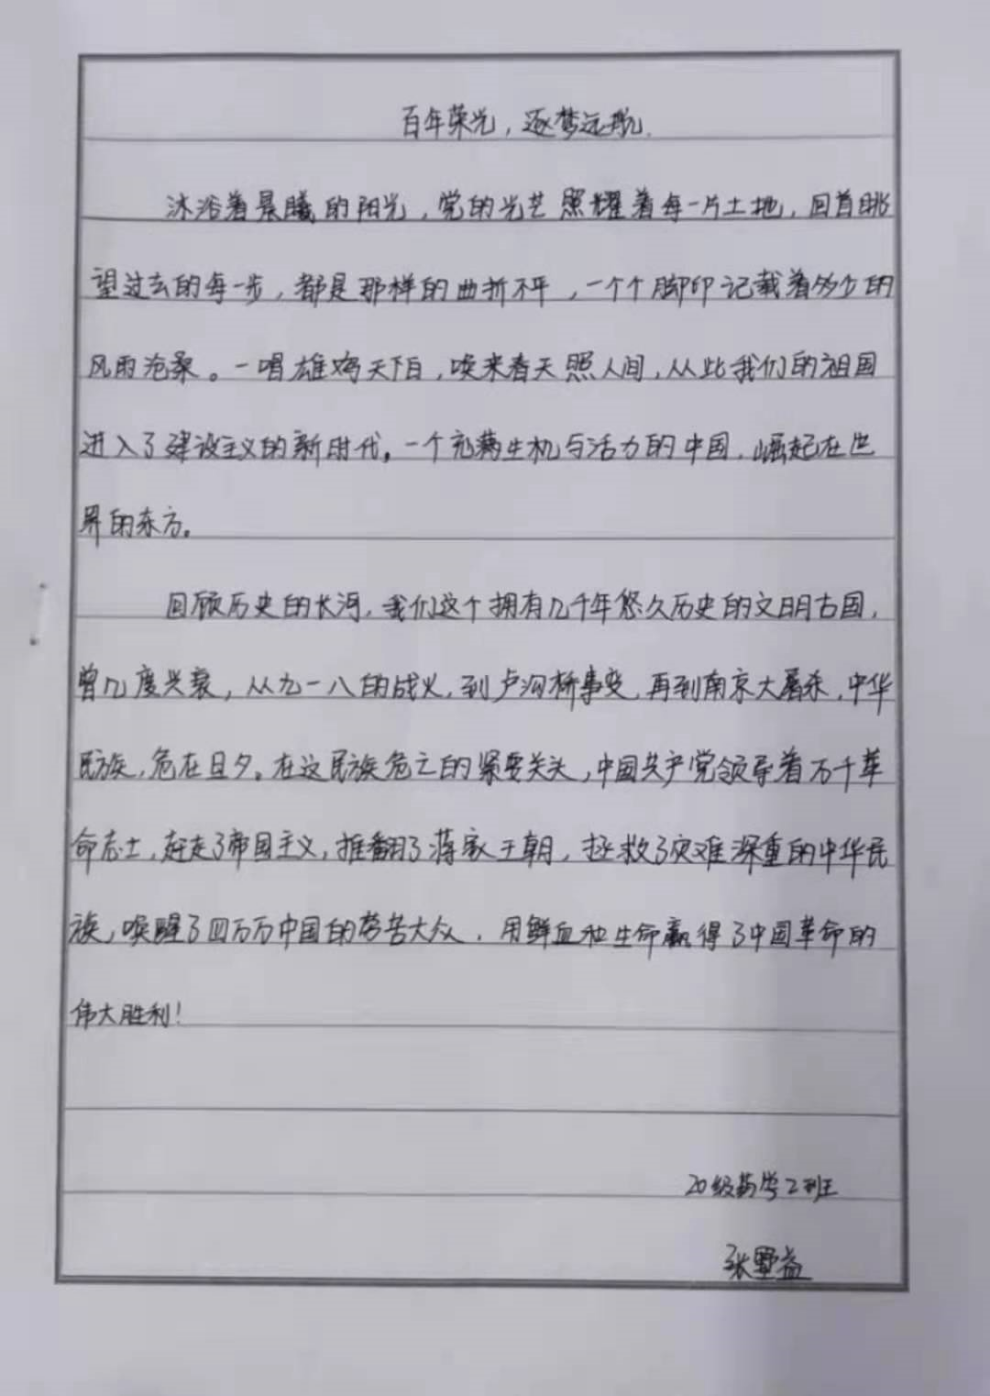 百年荣光，逐梦远航.
沐浴着晨曦的阳光，党的光芒照耀着每一片土地，回首眺
望过去的每一步，都是那样的曲折不平，一个个脚印记载着多少的
风雨沧桑。一唱雄鸡天下白，唤来春天照人间，从此我们的祖国
进入了建设主义的新时代。一个充满生机与活力的中国，崛起在世
界的东方。
回顾历史的长河，我们这个拥有几千年悠久历史的文明古国，
曾几度兴衰，从九一八的战火，到卢沟桥事变，再到南京大屠杀，中华
民族，危在旦夕。在这民族危亡的紧要关头，中国共产党领导着万千革
命志士，赶走了帝国主义，推翻了蒋家王朝，拯救了灾难深重的中华民
族，唤醒了四万万中国的劳苦大众，用鲜血和生命赢得了中国革命的
伟大胜利！
20级药学2班
张墅益